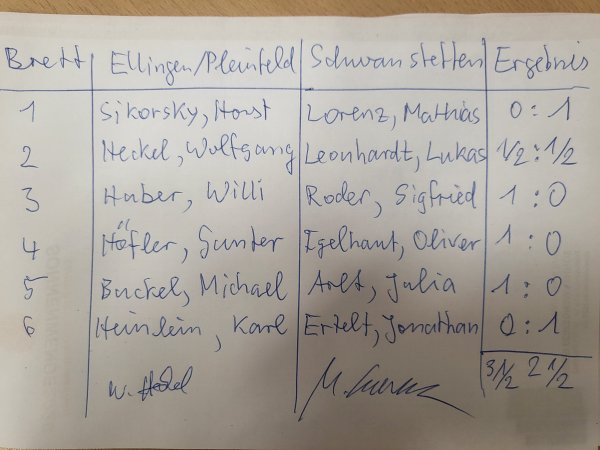 Brett Ellingen/Pleinfeld Schwanstetten Ergebnis
1 Sikorsky, Horst Lorenz, Mathias 0 : 1
2 Heckel, Wolfgang Leonhardt, Lukas 1/2 : 1/2
3 Huber, Willi Roder, Sigfried 1 : 0
4 Höfler, Gunter Igelhaut, Oliver 1 : 0
5 Buckel, Michael Arlt, Julia 1 : 0
6 Heinlein, Karl Ertelt, Jonathan 0 : 1
W. M. 3 1/2 2 1/2